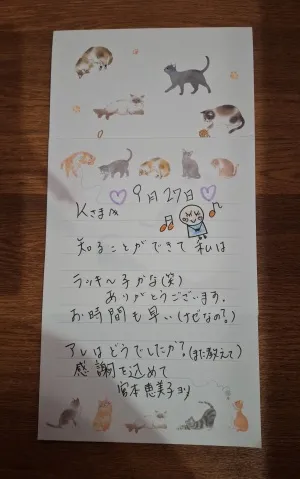 9月27日
Kさまへ
知ることができて 私は
ラッキ〜子かな(笑)
ありがとうございます。
お時間も早い(なぜなの?)
アレはどうでしたか?(また教えて)
感謝を込めて
宮本恵美子より